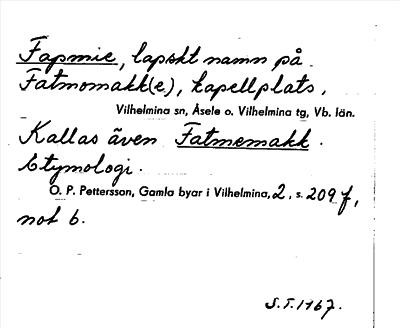 Fapmie, lapskt namn på
Fatmomakk(e), kapellplats,
Vilhelmina sn, Åsele o. Vilhelmina tg, Vb. län.
Kallas även Fatmemakk.
Etymologi.
O. P. Pettersson, Gamla byar i Vilhelmina, 2, s. 209 f,
not 6.
S.T. 1167.